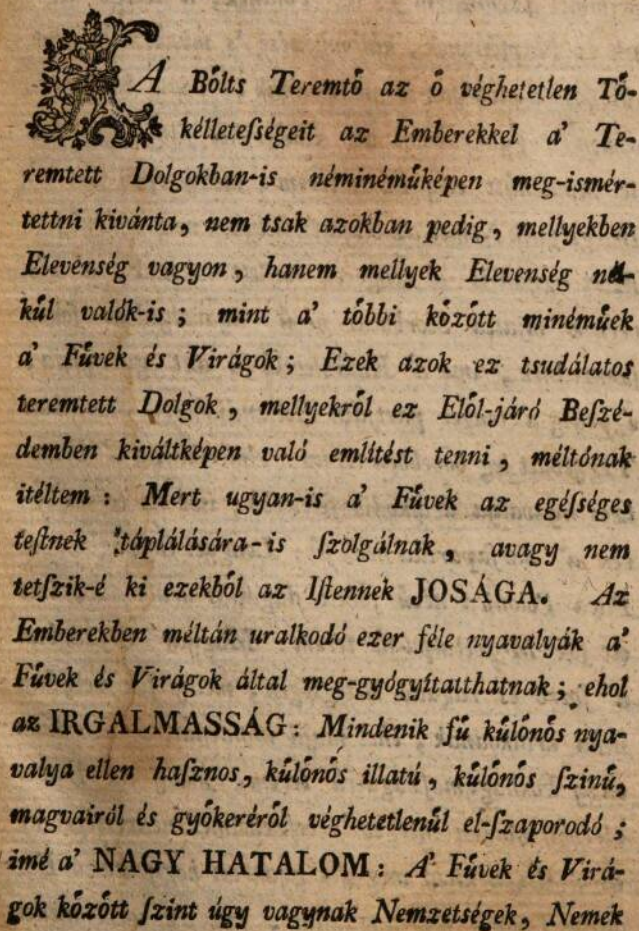 A Bőlts Teremtő az ő véghetetlen Tő-
kélleteſségeit az Emberekkel a' Te-
remtett Dolgokban-is néminéműképen meg-ismér-
tettni kivánta, nem tsak azokban pedig, mellyekben
Elevenség vagyon, hanem mellyek Elevenség nél-
kűl valók-is; mint a' tőbbi kőzőtt minéműek
a' Fűvek és Virágok; Ezek azok ez tsudálatos
teremtett Dolgok, mellyekről ez Elől-járó Beſzé-
demben kiváltképen való említést tenni, méltónak
itéltem: Mert ugyan-is a' Fűvek az egéſséges
teſtnek táplálására-is ſzolgálnak, avagy nem
tetſzik-é ki ezekből az Iſtennek JOSÁGA. Az
Emberekben méltán uralkodó ezer féle nyavalyák a'
Fűvek és Virágok által meg-gyógyíttatthatnak; ehol
az IRGALMASSÁG: Mindenik fű kűlőnős nya-
valya ellen haſznos, kűlőnős illatú, kűlőnős ſzinű,
magvairól és győkeréről véghetetlenűl el-ſzaporodó;
imé a' NAGY HATALOM: A' Fűvek és Virá-
gok kőzőtt ſzint úgy vagynak Nemzetségek, Nemek